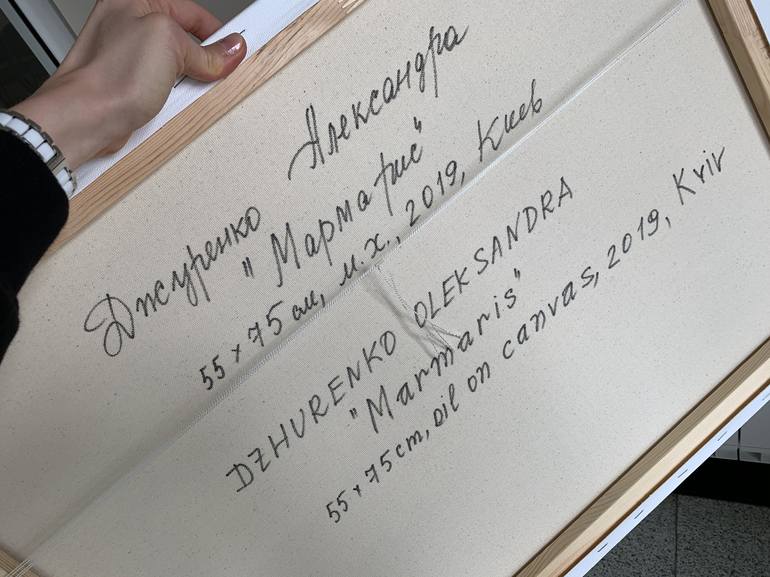 Джуренко Александра
"Мармарис"
55 x 75 см, м.х., 2019, Киев
DZHURENKO OLEKSANDRA
"Marmaris"
55 x 75 cm, oil on canvas, 2019, Kviv